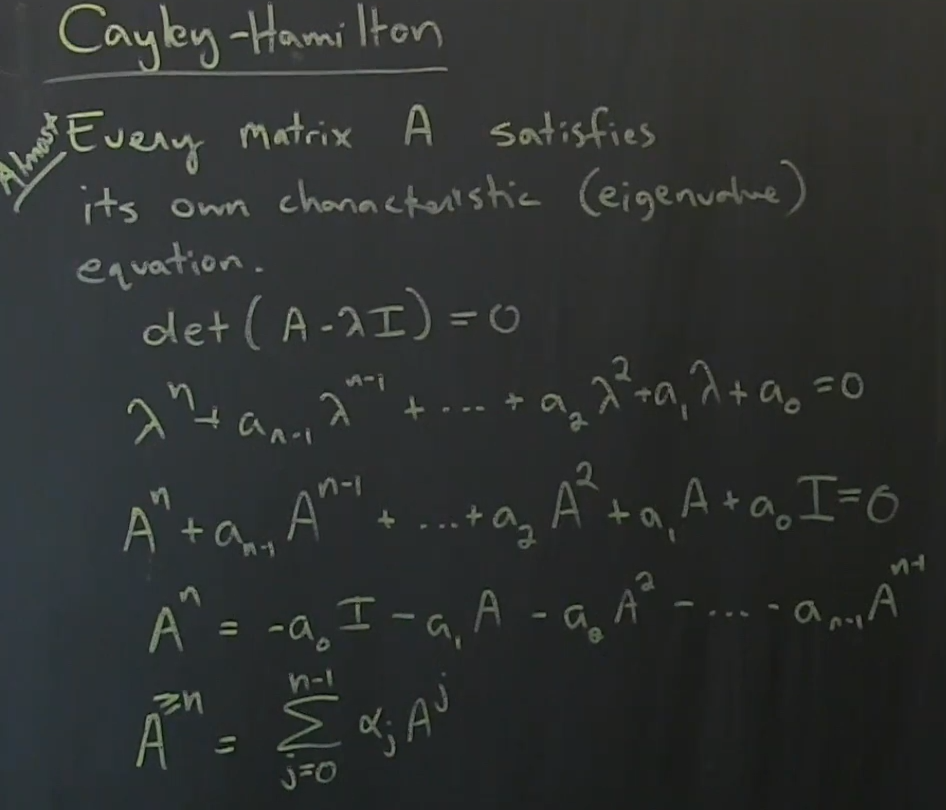 Cayley-Hamilton
Almost Every matrix A satisfies
its own characteristic (eigenvalue)
equation.
det(A-λI)=0
λⁿ + aₙ₋₁ λⁿ⁻¹ + ... + a₂λ² + a₁λ + a₀ = 0
Aⁿ + aₙ₋₁ Aⁿ⁻¹ + ... + a₂ A² + a₁ A + a₀ I = 0
Aⁿ = -a₀ I - a₁ A - a₂ A² - ... - aₙ₋₁ Aⁿ⁻¹
A^{≥n} = Σ_{j=0}^{n-1} αⱼ Aʲ